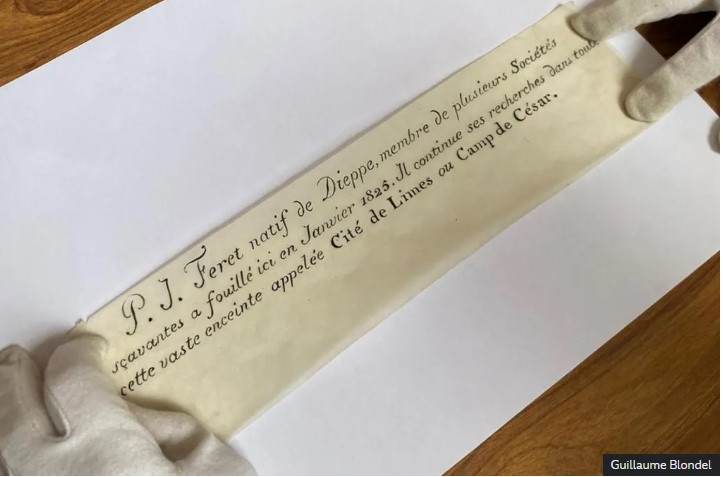 P. J. Feret natif de Dieppe, membre de plusieurs Sociétés
sçavantes a fouillé ici en Janvier 1825. Il continue ses recherches dans toute
cette vaste enceinte appelée Cité de Limes ou Camp de César.
Guillaume Blondel